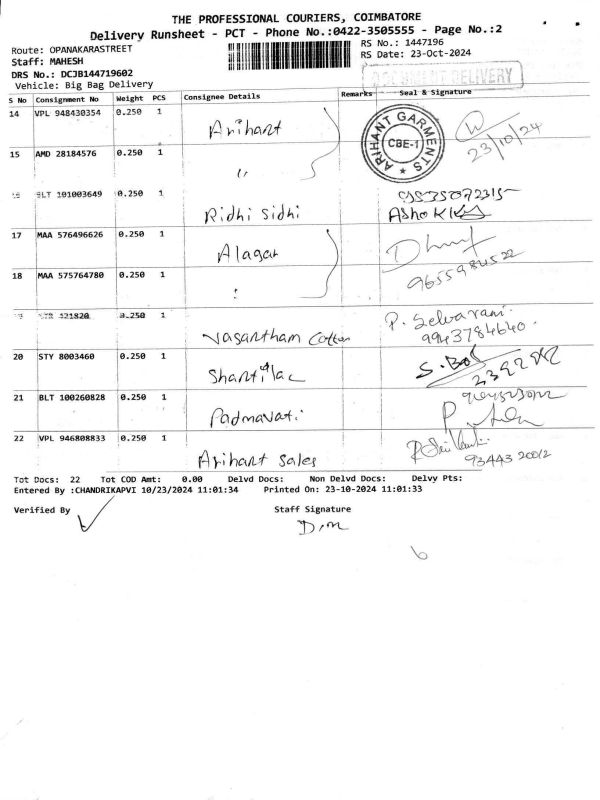 THE PROFESSIONAL COURIERS, COIMBATORE
Delivery Runsheet - PCT - Phone No.:0422-3505555 - Page No.:2
Route: OPANAKARASTREET
RS No.: 1447196
Staff: MAHESH
RS Date: 23-Oct-2024
DRS No.: DCJB144719602
DOCUMENT DELIVERY
Vehicle: Big Bag Delivery
S No Consignment No Weight PCS Consignee Details Remarks Seal & Signature
14 VPL 948430354 0.250 1 Arihant
ARIHANT GARMENTS
CBE-1
23/10/24
15 AMD 28184576 0.250 1 "
16 BLT 101003649 0.250 1 Ridhi Sidhi
Ashok
17 MAA 576496626 0.250 1 Alagar
18 MAA 575764780 0.250 1
9655984522
19 421820 0.250 1 Vasantham Cotton
P. Selvarani
9943784640.
20 STY 8003460 0.250 1 Shantilac
21 BLT 100260828 0.250 1 Padmavati
22 VPL 946808833 0.250 1 Arihant Sales
93443 20012
Tot Docs: 22 Tot COD Amt: 0.00 Delvd Docs: Non Delvd Docs: Delvy Pts:
Entered By :CHANDRIKAPVI 10/23/2024 11:01:34 Printed On: 23-10-2024 11:01:33
Verified By Staff Signature
6